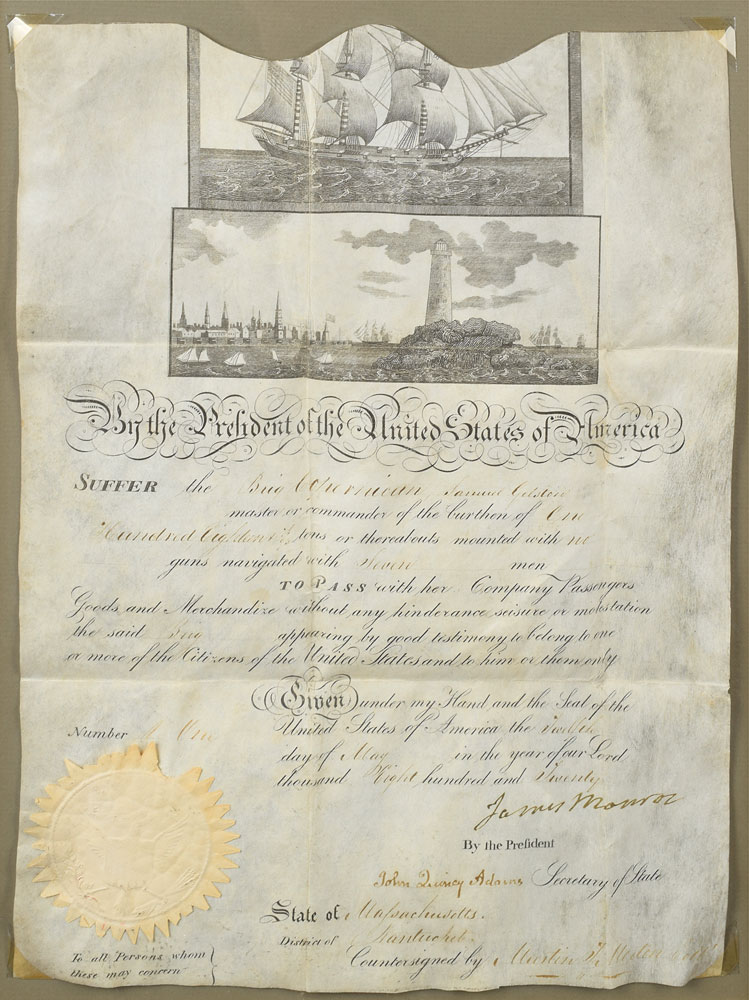 By the President of the United States of America
SUFFER the Brig Samuel
master or commander of the burthen of One
Hundred tons or thereabouts mounted with no
guns navigated with Seven men
TO PASS with her Company Passengers
Goods and Merchandize without any hinderance seisure or molestation
the said Brig appearing by good testimony to belong to one
or more of the Citizens of the United States and to him or them only
Given under my Hand and the Seal of the
Number One
United States of America the Twelfth
day of May in the year of our Lord
thousand Eight hundred and Twenty
James Monroe
By the President
John Quincy Adams Secretary of State
State of Massachusetts.
District of Nantucket.
Countersigned by Martin T.
To all Persons whom
these may concern